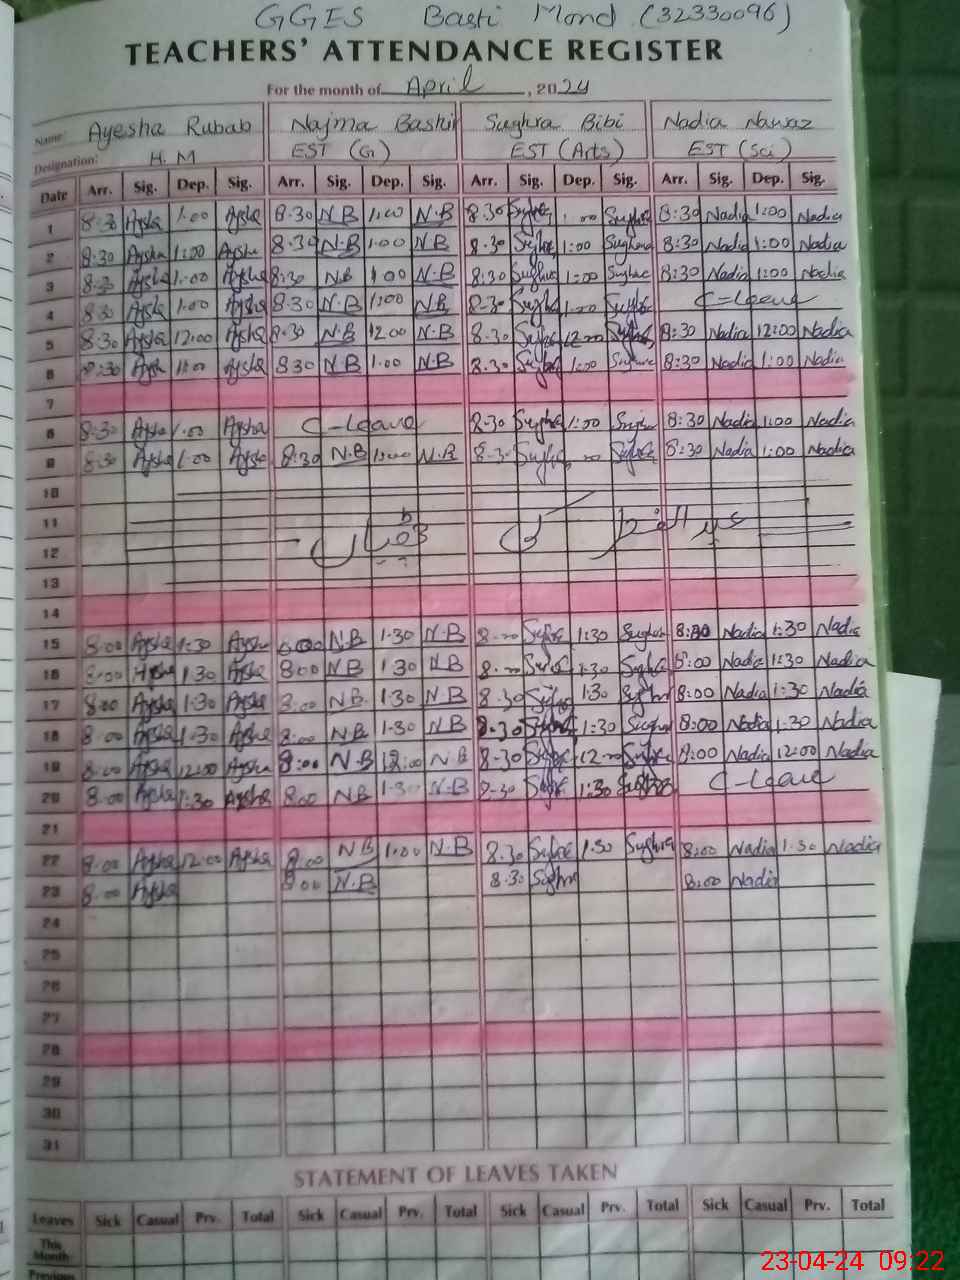 GGES Basti Mond (32330096)
TEACHERS' ATTENDANCE REGISTER
For the month of April, 2024
Name: Ayesha Rubab Najma Bashir Sughra Bibi Nadia Nawaz
Designation: H.M EST (G) EST (Arts) EST (Sci)
Date Arr. Sig. Dep. Sig. Arr. Sig. Dep. Sig. Arr. Sig. Dep. Sig. Arr. Sig. Dep. Sig.
1 8:30 Aysha 1:00 Aysha 8:30 N.B 1:00 N.B 8:30 Sughra 1:00 Sughra 8:30 Nadia 1:00 Nadia
2 8:30 Aysha 1:00 Aysha 8:30 N.B 1:00 N.B 8:30 Sughra 1:00 Sughra 8:30 Nadia 1:00 Nadia
3 8:30 Aysha 1:00 Aysha 8:30 N.B 1:00 N.B 8:30 Sughra 1:00 Sughra 8:30 Nadia 1:00 Nadia
4 8:30 Aysha 1:00 Aysha 8:30 N.B 1:00 N.B 8:30 Sughra 1:00 Sughra C-Leave
5 8:30 Aysha 12:00 Aysha 8:30 N.B 12:00 N.B 8:30 Sughra 12:00 Sughra 8:30 Nadia 12:00 Nadia
6 8:30 Aysha 1:00 Aysha 8:30 N.B 1:00 N.B 8:30 Sughra 1:00 Sughra 8:30 Nadia 1:00 Nadia
7
8 8:30 Aysha 1:00 Aysha C-Leave 8:30 Sughra 1:00 Sughra 8:30 Nadia 1:00 Nadia
9 8:30 Aysha 1:00 Aysha 8:30 N.B 1:00 N.B 8:30 Sughra Sughra 8:30 Nadia 1:00 Nadia
10
11
12
13
14
15 8:00 Aysha 1:30 Aysha 8:00 N.B 1:30 N.B 8:00 Sughra 1:30 Sughra 8:00 Nadia 1:30 Nadia
16 8:00 Aysha 1:30 Aysha 8:00 N.B 1:30 N.B 8:00 Sughra 1:30 Sughra 8:00 Nadia 1:30 Nadia
17 8:00 Aysha 1:30 Aysha 8:00 N.B 1:30 N.B 8:30 Sughra 1:30 Sughra 8:00 Nadia 1:30 Nadia
18 8:00 Aysha 1:30 Aysha 8:00 N.B 1:30 N.B 8:30 Sughra 1:30 Sughra 8:00 Nadia 1:30 Nadia
19 8:00 Aysha 12:00 Aysha 8:00 N.B 12:00 N.B 8:30 Sughra 12:00 Sughra 8:00 Nadia 12:00 Nadia
20 8:00 Aysha 1:30 Aysha 8:00 N.B 1:30 N.B 8:30 Sughra 1:30 Sughra C-Leave
21
22 8:00 Aysha 12:00 Aysha 8:00 N.B 1:00 N.B 8:30 Sughra 1:30 Sughra 8:00 Nadia 1:30 Nadia
23 8:00 Aysha 8:00 N.B 8:30 Sughra 8:00 Nadia
24
25
26
27
28
29
30
31
STATEMENT OF LEAVES TAKEN
Leaves Sick Casual Prv. Total Sick Casual Prv. Total Sick Casual Prv. Total Sick Casual Prv. Total
This Month
Previous
23-04-24 09:22